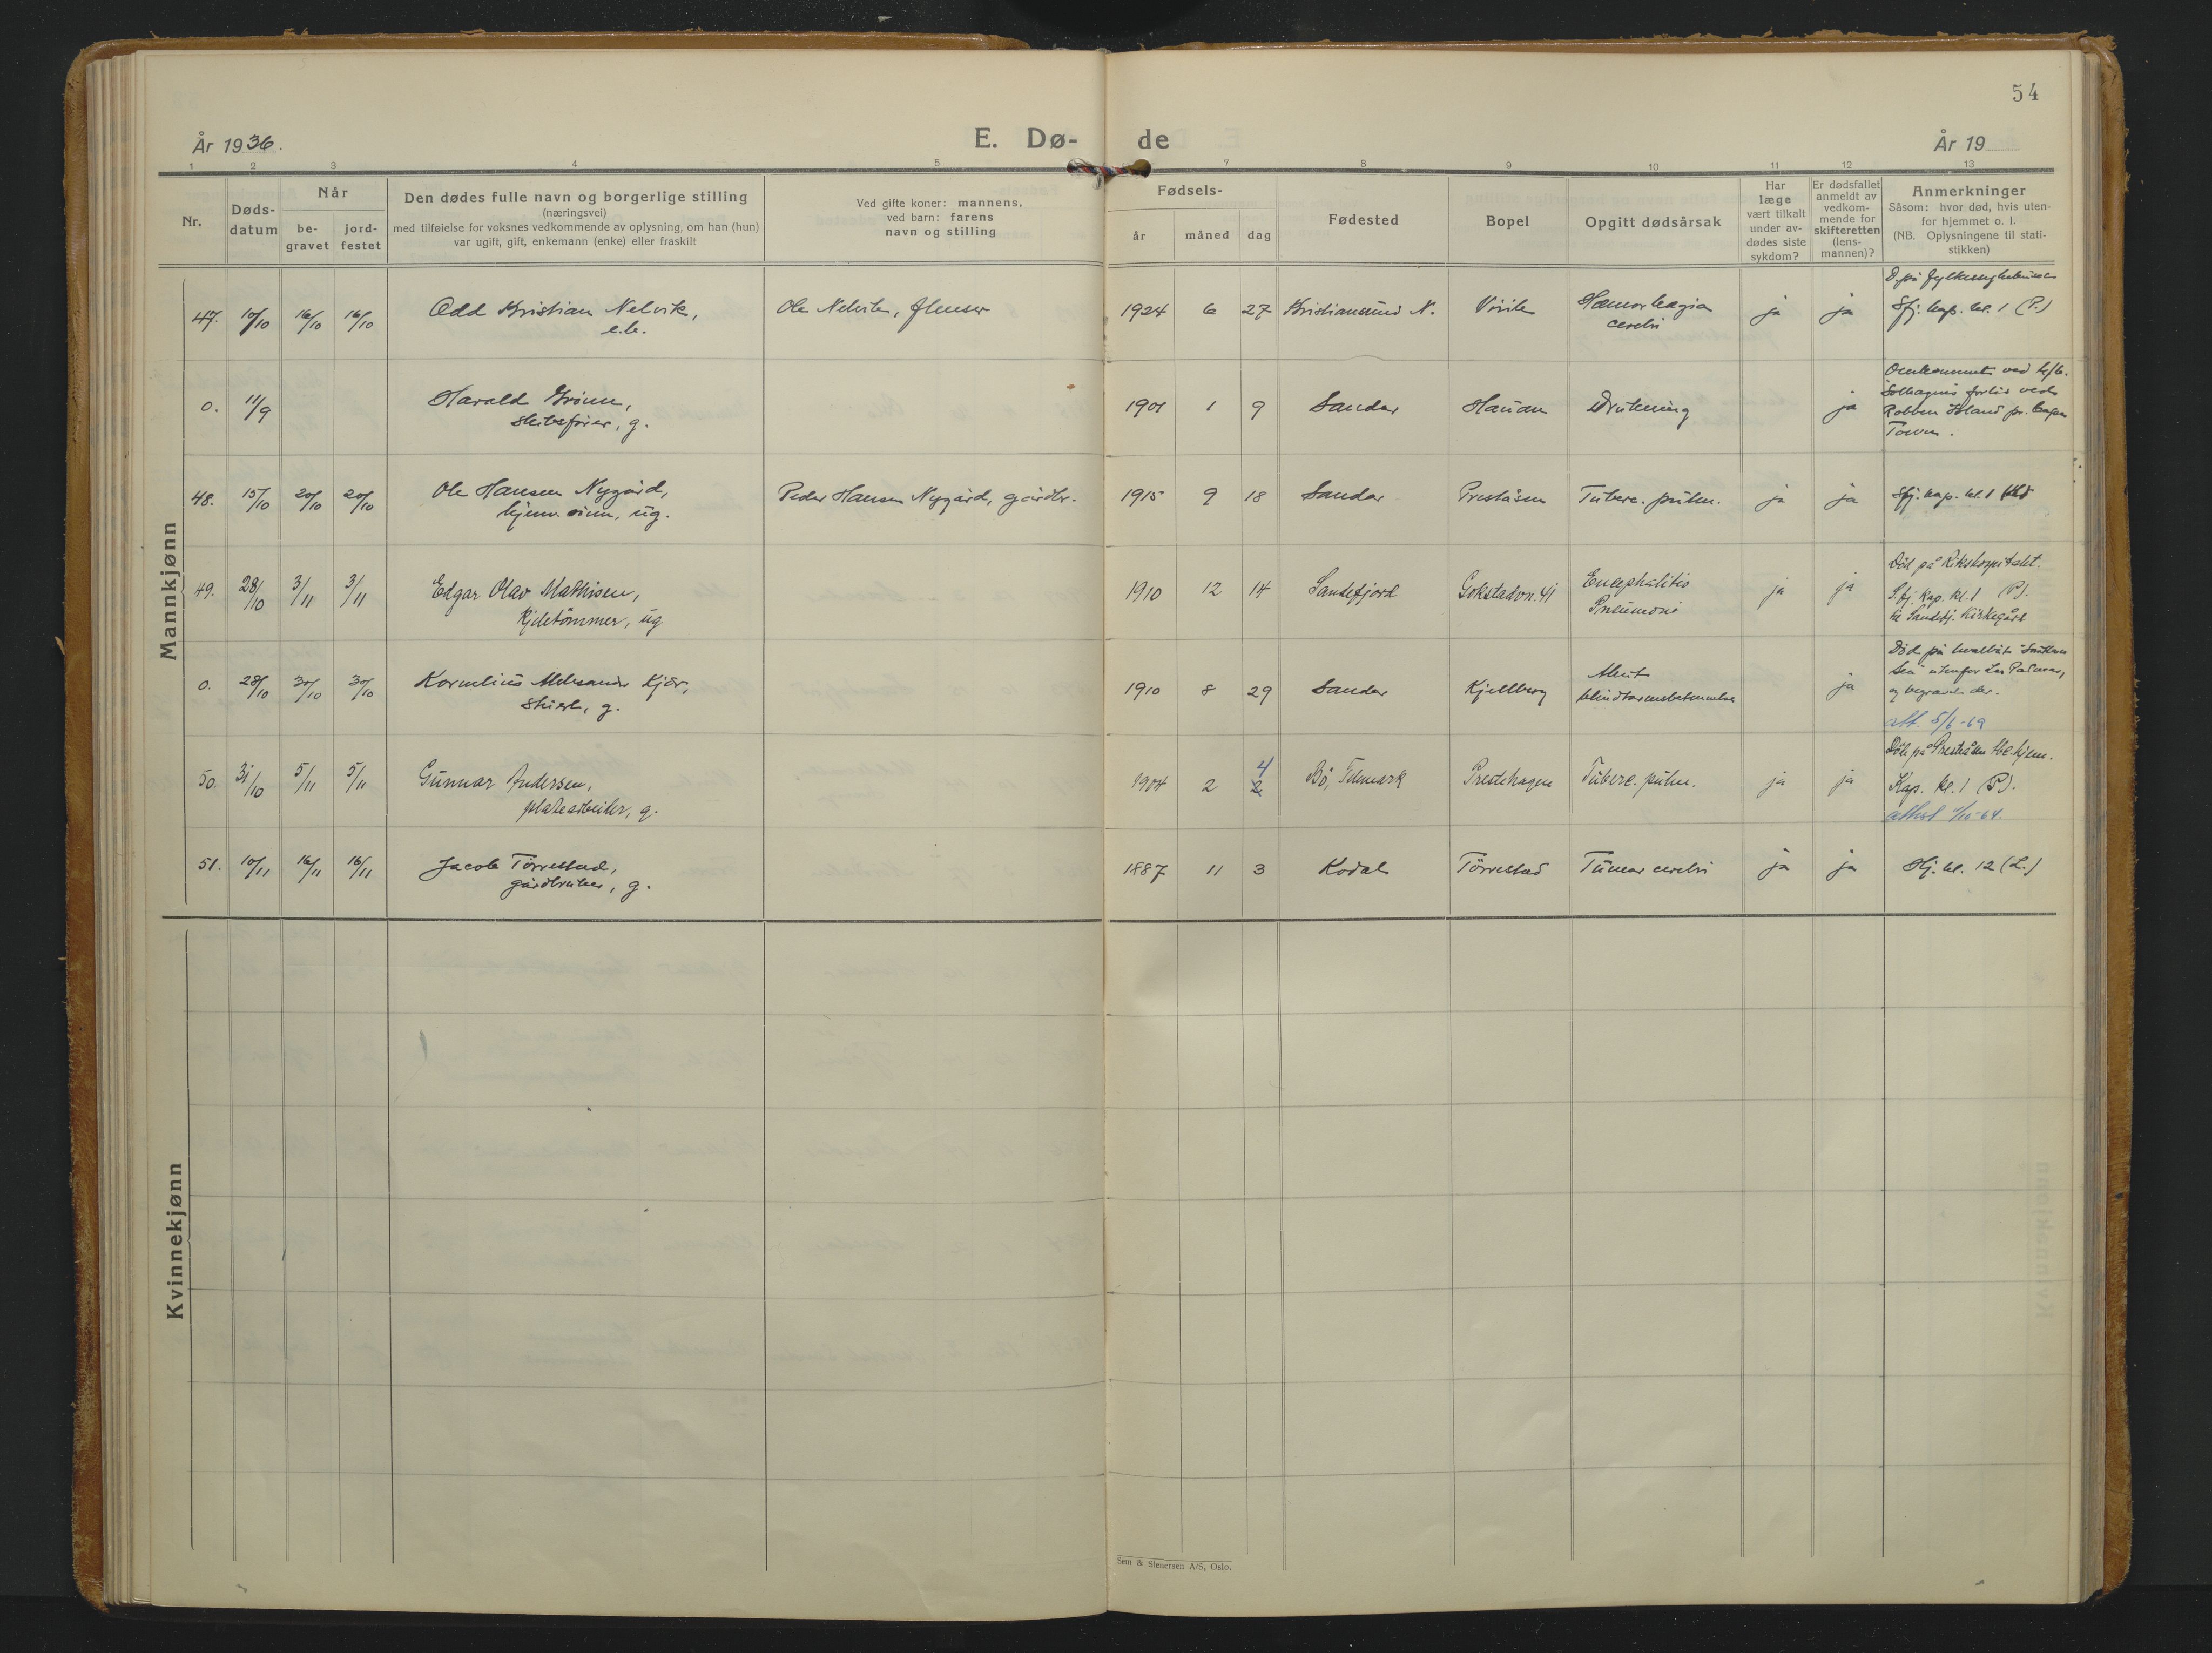 54
År 1936.
E. Dø- de
År 19
1 2 3 4 5 7 8 9 10 11 12 13
Nr.
Døds-
datum
Når
be-
gravet
jord-
festet
Den dødes fulle navn og borgerlige stilling
(næringsvei)
med tilføielse for voksnes vedkommende av oplysning, om han (hun)
var ugift, gift, enkemann (enke) eller fraskilt
Ved gifte koner: mannens,
ved barn: farens
navn og stilling
Fødsels-
år måned dag
Fødested
Bopel
Opgitt dødsårsak
Har
læge
vært tilkalt
under av-
dødes siste
sykdom?
Er dødsfallet
anmeldt av
vedkom-
mende for
skifteretten
(lens-
mannen)?
Anmerkninger
Såsom: hvor død, hvis uten-
for hjemmet o. l.
(NB. Oplysningene til stati-
stikken)
Mannkjønn
47. 10/10 16/10 16/10 Odd Kristian Nelvik,
e.b.
Ole Nelvik,
1924 6 27 Kristiansund N. Vövik Hæmorhagia
cerebri
ja ja
D. på fylkessykehuset
Sfj. kap. kl. 1 (P.)
0. 11/9 Harald Grönn,
skibsfører, g.
1901 1 9 Sandar Haüan Drukning ja
Omkommet ved h/b.
Solhaugs forlis ved
Robben Island pr. Cape
Town.
48. 15/10 20/10 20/10 Ole Hansen Nygård,
hjemv. sönn, ug.
Peder Hansen Nygård, gårdbr.
1915 9 18 Sandar Preståsen Tuberc. pulm. ja ja
Sfj. kap. kl. 1
49. 28/10 3/11 3/11 Edgar Olav Mathisen,
Kjeletömmer, ug
1910 12 14 Sandefjord Gokstadvn. 41 Encephalitis
Pneumoni
ja ja
Död på Rikshospitalet.
S.fj. Kap. kl. 1 (P).
til Sandefj. Kirkegård
0. 28/10 30/10 30/10 Kornelius Aleksander Kjær,
g.
1910 8 29 Sandar Kjellberg Akut
blindtarmsbetennelse
ja
Död på hvalbåt "Southern
Sea" utenfor Las Palmas,
og begravet der.
att. 5/6-69
50. 31/10 5/11 5/11 Gunnar Andersen,
platearbeider, g.
1904 2 2 4 Bö, Telemark Prestehagen Tuberc. pulm. ja ja
Död på Preståsen tbc. hjem.
Kap. kl. 1 (P).
attest 1/10-64.
51. 10/11 16/11 16/11 Jacob Törrestad,
gårdbruker, g.
1887 11 3 Kodal Törrestad Tumor cerebri ja ja
Hj. kl. 12 (L.)
Kvinnekjønn
Sem & Stenersen A/S, Oslo.